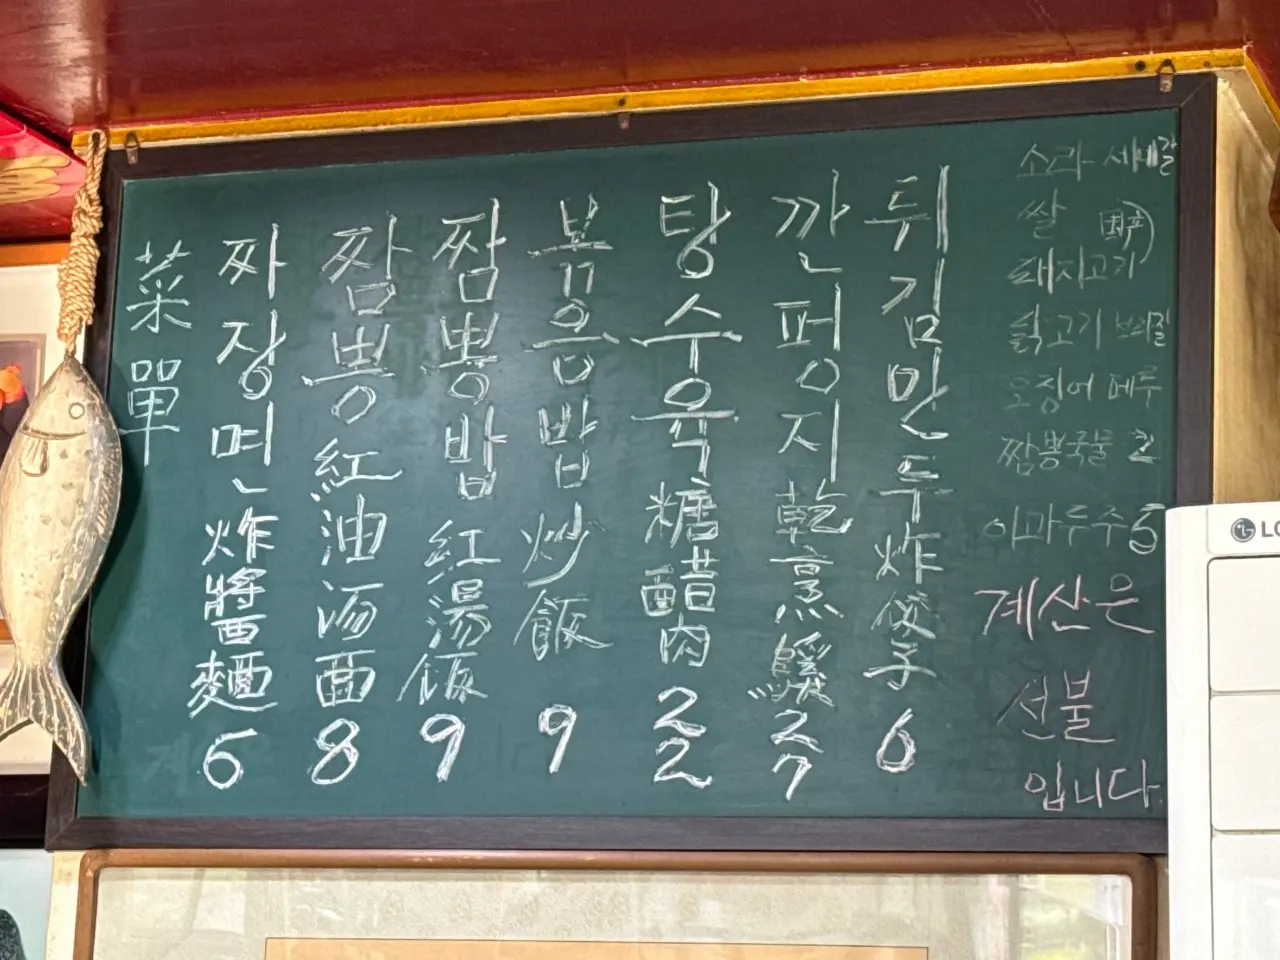 菜單
짜장면 炸醬麵 6
짬뽕 紅油湯面 8
짬뽕밥 紅湯飯 9
볶음밥 炒飯 9
탕수육 糖醋肉 22
깐펑지 乾烹鷄 27
튀김만두 炸餃子 6
소라 세네갈
쌀
돼지고기
닭고기 브라질
오징어 페루
짬뽕국물 2
이과두주 5
계산은
선불
입니다
LG